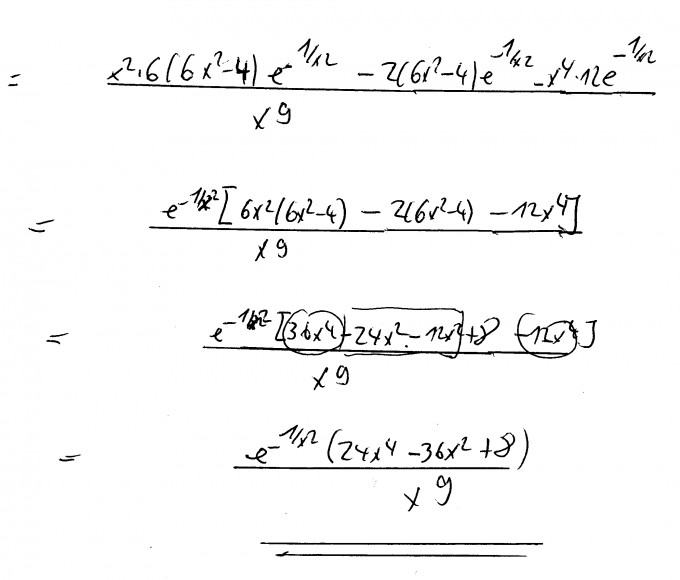 = x²·6(6x²-4)e^(-1/x²) - 2(6x²-4)e^(-1/x²) - x⁴·12e^(-1/x²) / x⁹
= e^(-1/x²)[6x²(6x²-4) - 2(6x²-4) - 12x⁴] / x⁹
= e^(-1/x²)[36x⁴ - 24x² - 12x² + 8 - 12x⁴] / x⁹
= e^(-1/x²)(24x⁴ - 36x² + 8) / x⁹